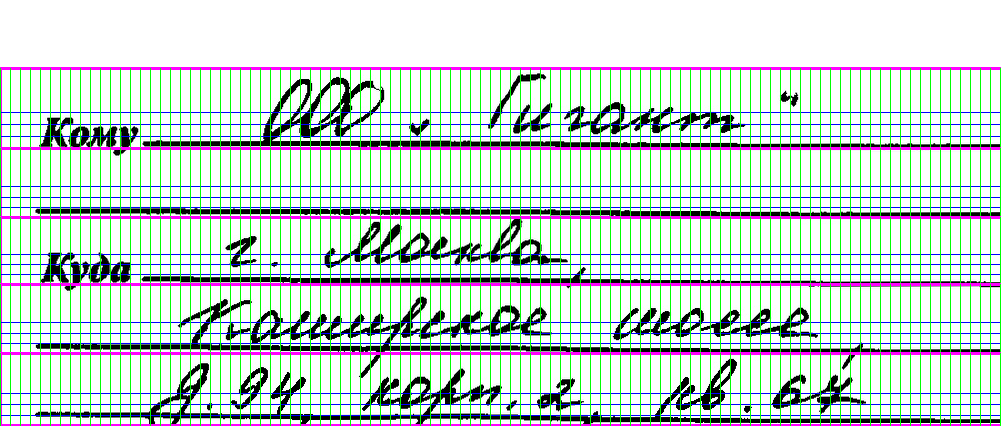 Кому ООО „Гигант“
Куда г. Москва,
Каширское шоссе
д. 94, корп. 2, кв. 64